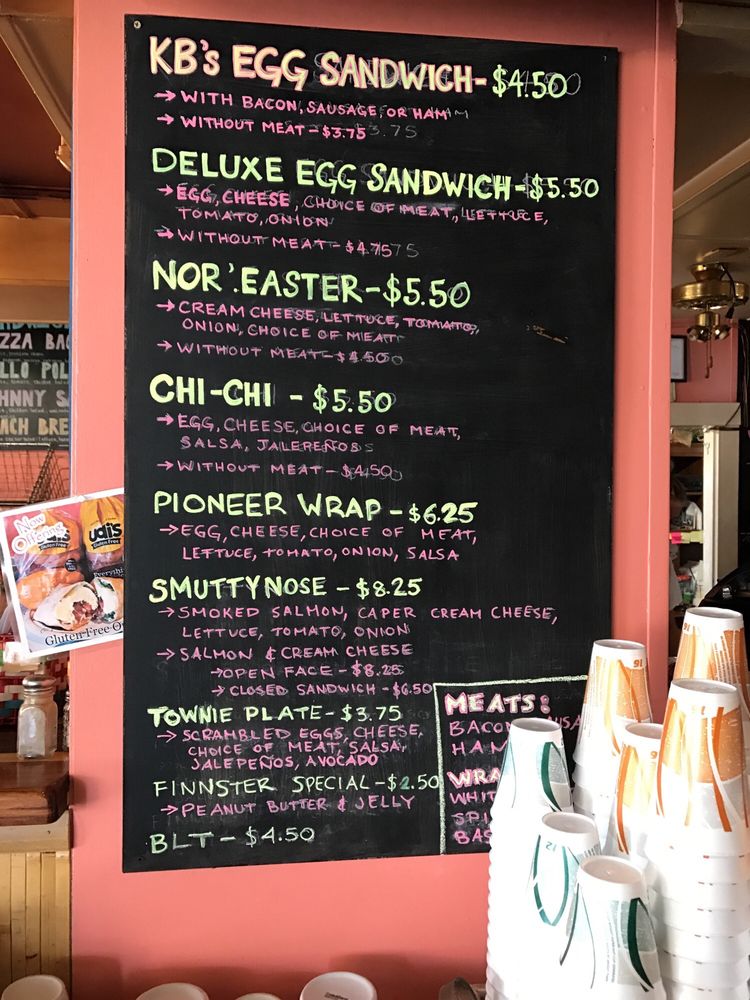 KB's EGG SANDWICH- $4.50
→ WITH BACON, SAUSAGE, OR HAM
→ WITHOUT MEAT - $3.75
DELUXE EGG SANDWICH - $5.50
→ EGG, CHEESE, CHOICE OF MEAT, LETTUCE,
TOMATO, ONION
→ WITHOUT MEAT - $4.75
NOR'EASTER - $5.50
→ CREAM CHEESE, LETTUCE, TOMATO,
ONION, CHOICE OF MEAT
→ WITHOUT MEAT - $4.50
CHI-CHI - $5.50
→ EGG, CHEESE, CHOICE OF MEAT,
SALSA, JALEPEÑOS
→ WITHOUT MEAT - $4.50
PIONEER WRAP - $6.25
→ EGG, CHEESE, CHOICE OF MEAT,
LETTUCE, TOMATO, ONION, SALSA
SMUTTYNOSE - $8.25
→ SMOKED SALMON, CAPER CREAM CHEESE,
LETTUCE, TOMATO, ONION
→ SALMON & CREAM CHEESE
→ OPEN FACE - $8.25
→ CLOSED SANDWICH - $6.50
TOWNIE PLATE - $3.75
→ SCRAMBLED EGGS, CHEESE,
CHOICE OF MEAT, SALSA,
JALEPEÑOS, AVOCADO
FINNSTER SPECIAL - $2.50
→ PEANUT BUTTER & JELLY
BLT - $4.50
MEATS:
BACON
HAM
WRA
WHIT
SPI
BAS
ZZA BA
LLO POL
HNNY S
ACH BRE
Now Offering
udis
Gluten Free
Everythi
Gluten Free O
16
16
16
12